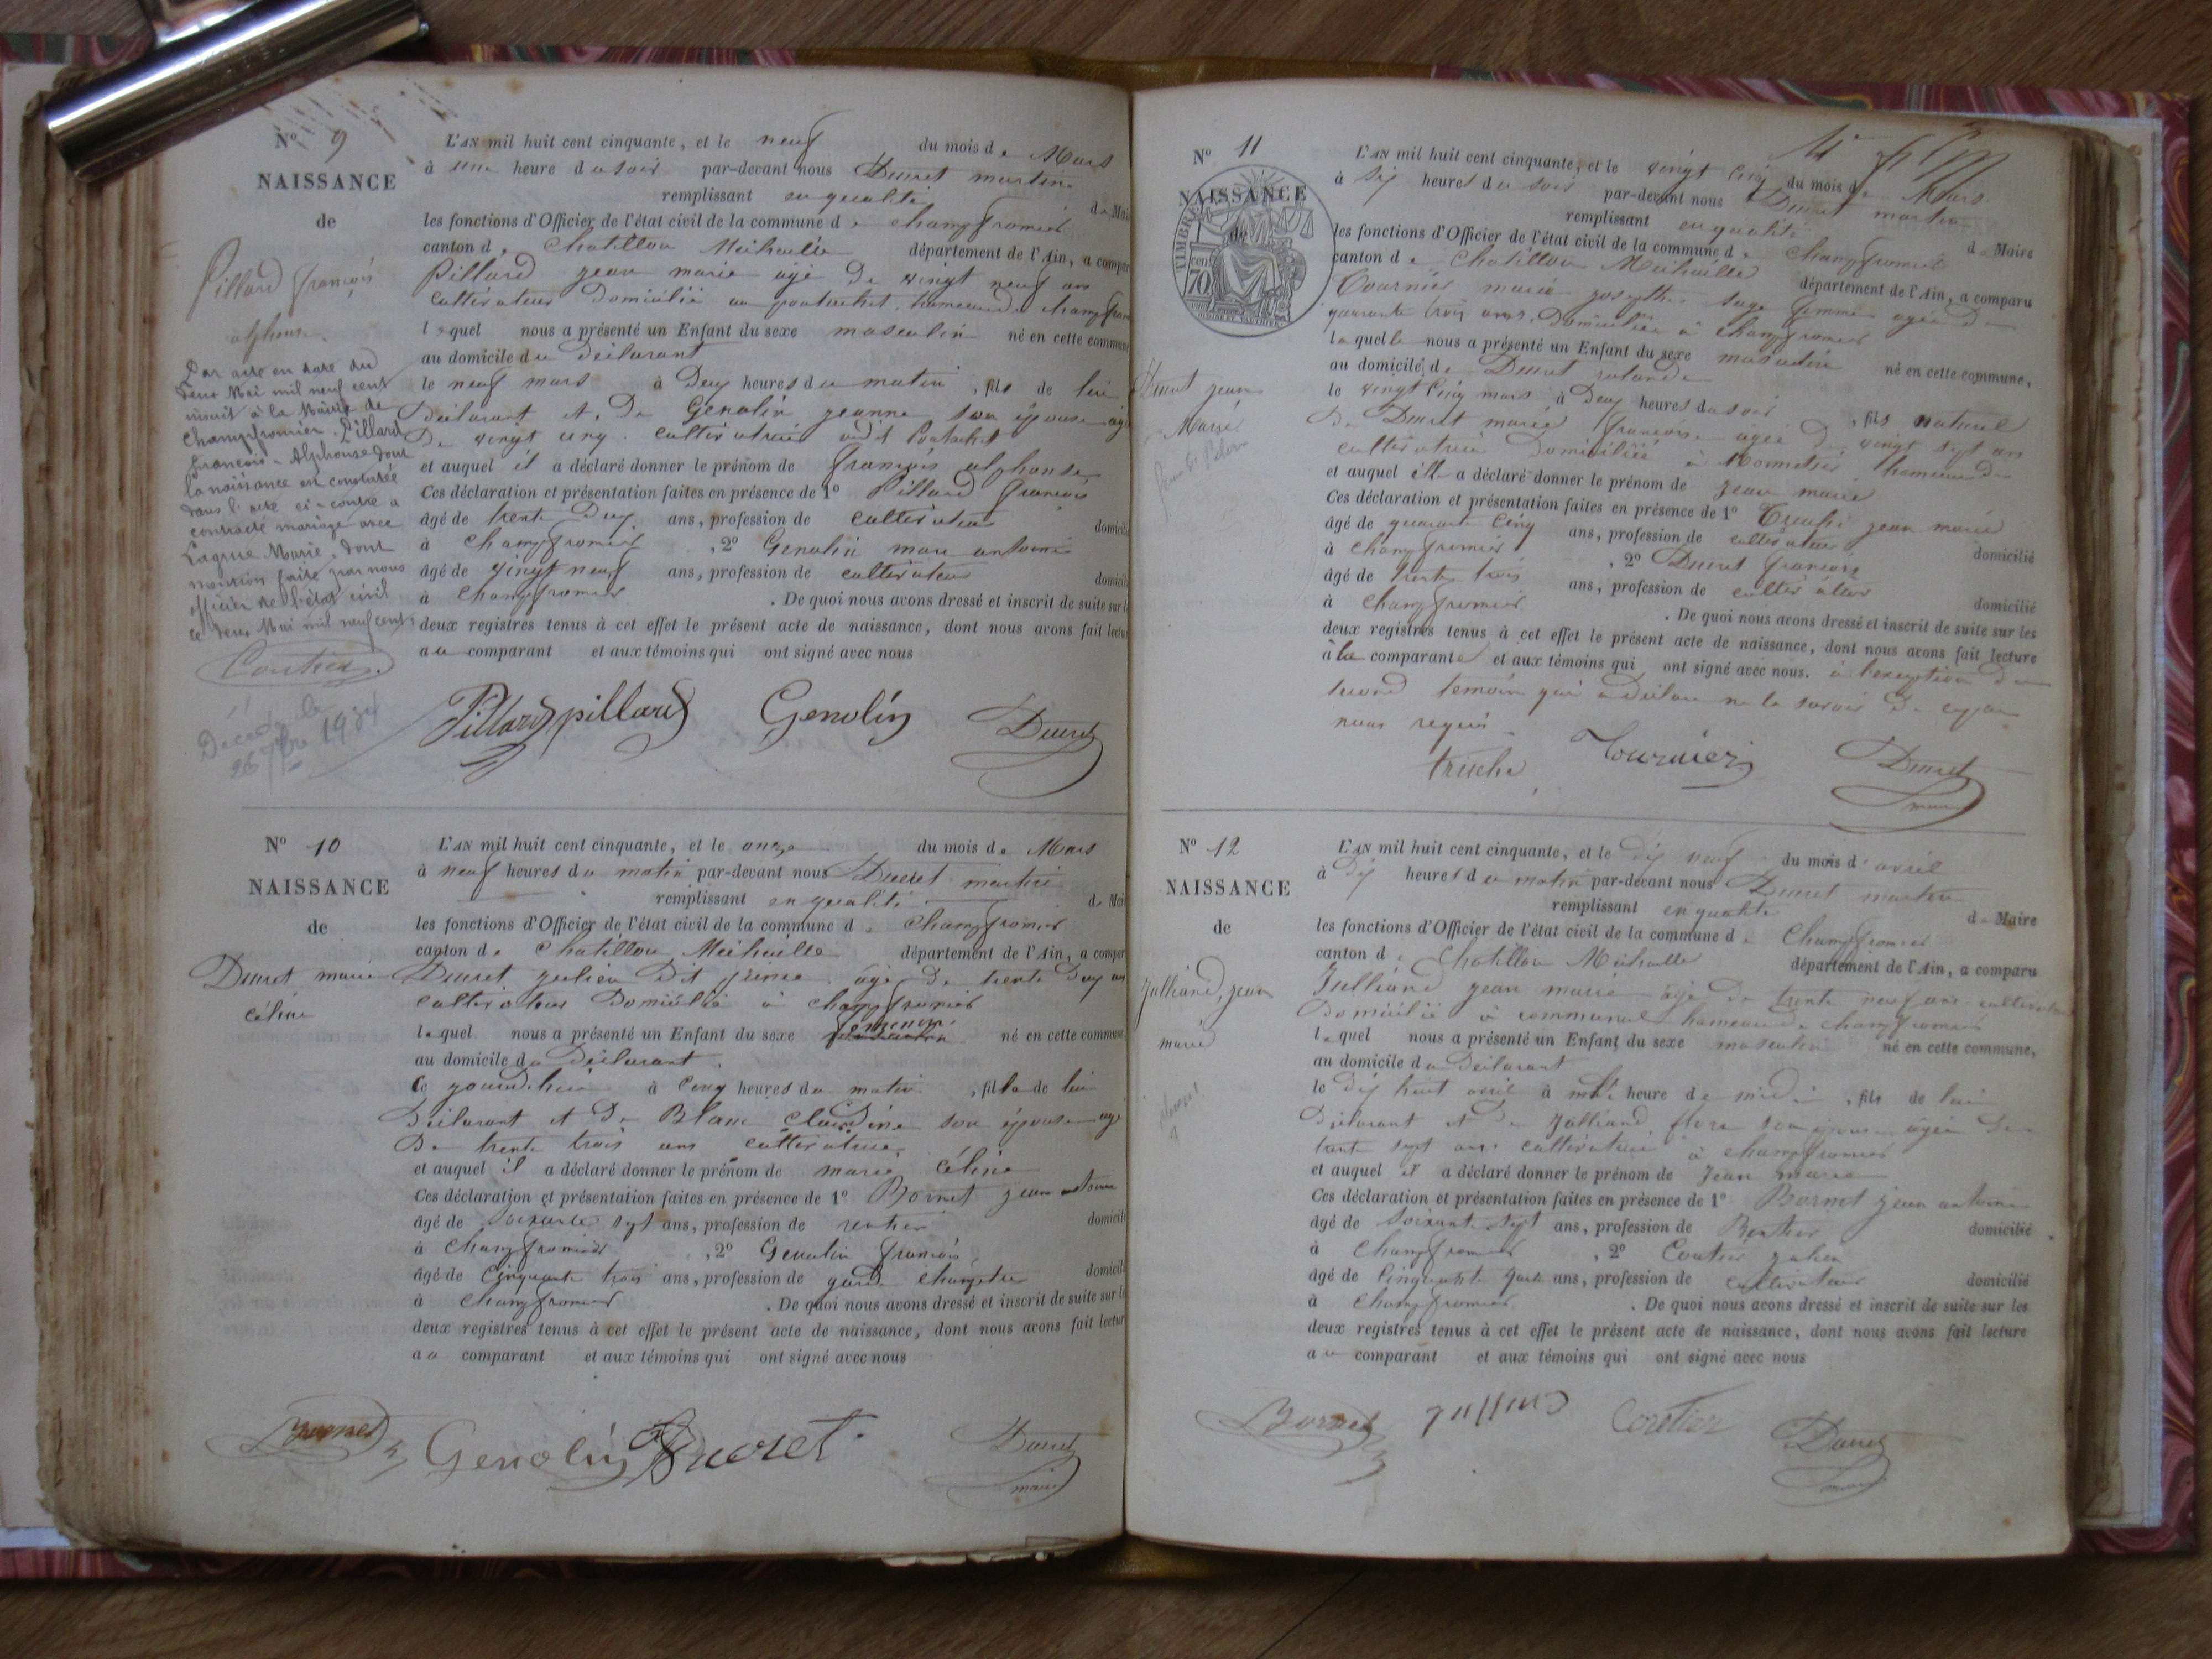 N° 9
NAISSANCE
de
Pillard françois
alphonse
Par acte en date du
deux Mai mil neuf cent
inscrit à la Mairie de
Champfromier. Pillard
françois-Alphonse dont
la naissance est constatée
dans l'acte ci-contre a
contracté mariage avec
Marie, dont
mention faite par nous
officier de l'état civil
ce deux Mai mil neuf cent
Coutier
Décédé le
26 1934
L'AN mil huit cent cinquante, et le neuf du mois de Mars
à une heure du soir par-devant nous Ducret martin
remplissant en qualité de Mai
les fonctions d'Officier de l'état civil de la commune de champfromier
canton de Chatillon Michaille département de l'Ain, a compar
Pillard jean marie agé de vingt neuf ans
cultivateur Domicilié au hameau de champfrom
lequel nous a présenté un Enfant du sexe masculin né en cette commune
au domicile du déclarant
le neuf mars à Deux heures du matin, fils de lui
Déclarant et de Genolin jeanne son épouse agé
De vingt cinq cultivatrice
et auquel il a déclaré donner le prénom de françois alphonse
Ces déclaration et présentation faites en présence de 1° Pillard françois
âgé de trente Deux ans, profession de cultivateur domicili
à Champfromier, 2° Genolin marc antoine
âgé de vingt neuf ans, profession de cultivateur domicili
à Champfromier. De quoi nous avons dressé et inscrit de suite sur l
deux registres tenus à cet effet le présent acte de naissance, dont nous avons fait lectu
au comparant et aux témoins qui ont signé avec nous
Pillard pillard Genolin Ducret
N° 10
NAISSANCE
de
Ducret marie
céline
L'AN mil huit cent cinquante, et le onze du mois de Mars
à neuf heures du matin par-devant nous Ducret martin
remplissant en qualité de Mai
les fonctions d'Officier de l'état civil de la commune de champfromier
canton de Chatillon Michaille département de l'Ain, a compar
Ducret julien Dit agé de trente Deux an
cultivateur Domicilié à champfromier
lequel nous a présenté un Enfant du sexe feminin né en cette commune
au domicile du Déclarant
ce jourd'hui à cinq heures du matin, fille de lui
Déclarant et De Blanc claudine son épouse agé
De trente trois ans cultivatrice
et auquel il a déclaré donner le prénom de marie céline
Ces déclaration et présentation faites en présence de 1° Bornet jean antoine
âgé de soixante sept ans, profession de rentier domicili
à Champfromier, 2° Genolin françois
âgé de Cinquante trois ans, profession de garde champetre domicili
à Champfromier. De quoi nous avons dressé et inscrit de suite sur le
deux registres tenus à cet effet le présent acte de naissance, dont nous avons fait lectur
au comparant et aux témoins qui ont signé avec nous
Bornet Genolin Ducret Ducret
maire
N° 11
NAISSANCE
de
TIMBRE
70
Ducret jean
Marie
L'AN mil huit cent cinquante, et le vingt cinq du mois de Mars
à six heures du soir par-devant nous Ducret martin
remplissant en qualité de Maire
les fonctions d'Officier de l'état civil de la commune de Champfromier
canton de Chatillon Michaille département de l'Ain, a comparu
Tournier marie josephte sage femme agée de
quarante trois ans. Domiciliée à Champfromier
laquelle nous a présenté un Enfant du sexe masculin né en cette commune,
au domicile de Ducret
le vingt cinq mars à Deux heures du soir, fils naturel
De Ducret marie françoise agée de vingt sept ans
cultivatrice Domiciliée à Monnetier hameau de
et auquel elle a déclaré donner le prénom de jean marie
Ces déclaration et présentation faites en présence de 1° Truche jean marie
âgé de quarante cinq ans, profession de cultivateur domicilié
à Champfromier, 2° Ducret françois
âgé de trente trois ans, profession de cultivateur domicilié
à Champfromier. De quoi nous avons dressé et inscrit de suite sur les
deux registres tenus à cet effet le présent acte de naissance, dont nous avons fait lecture
à la comparante et aux témoins qui ont signé avec nous. à l'exception du
second temoin qui a déclaré ne le savoir De ce par
nous requis
truche Tournier Ducret
maire
N° 12
NAISSANCE
de
Julliand jean
marie
L'AN mil huit cent cinquante, et le dix neuf du mois d'avril
à Dix heures du matin par-devant nous Ducret martin
remplissant en qualité de Maire
les fonctions d'Officier de l'état civil de la commune de Champfromier
canton de Chatillon Michaille département de l'Ain, a comparu
Julliand jean marie agé de trente neuf ans cultivateur
Domicilié à communal hameau de champfromier
lequel nous a présenté un Enfant du sexe masculin né en cette commune,
au domicile du Déclarant
le dix huit avril à heure de midi, fils de lui
Déclarant et De Julliand flore son épouse agée De
trente sept ans cultivatrice à champfromier
et auquel il a déclaré donner le prénom de Jean marie
Ces déclaration et présentation faites en présence de 1° Bornet jean antoine
âgé de soixante sept ans, profession de Rentier domicilié
à Champfromier, 2° Coutier julien
âgé de Cinquante quatre ans, profession de cultivateur domicilié
à Champfromier. De quoi nous avons dressé et inscrit de suite sur les
deux registres tenus à cet effet le présent acte de naissance, dont nous avons fait lecture
au comparant et aux témoins qui ont signé avec nous
Bornet Coutier Ducret
maire